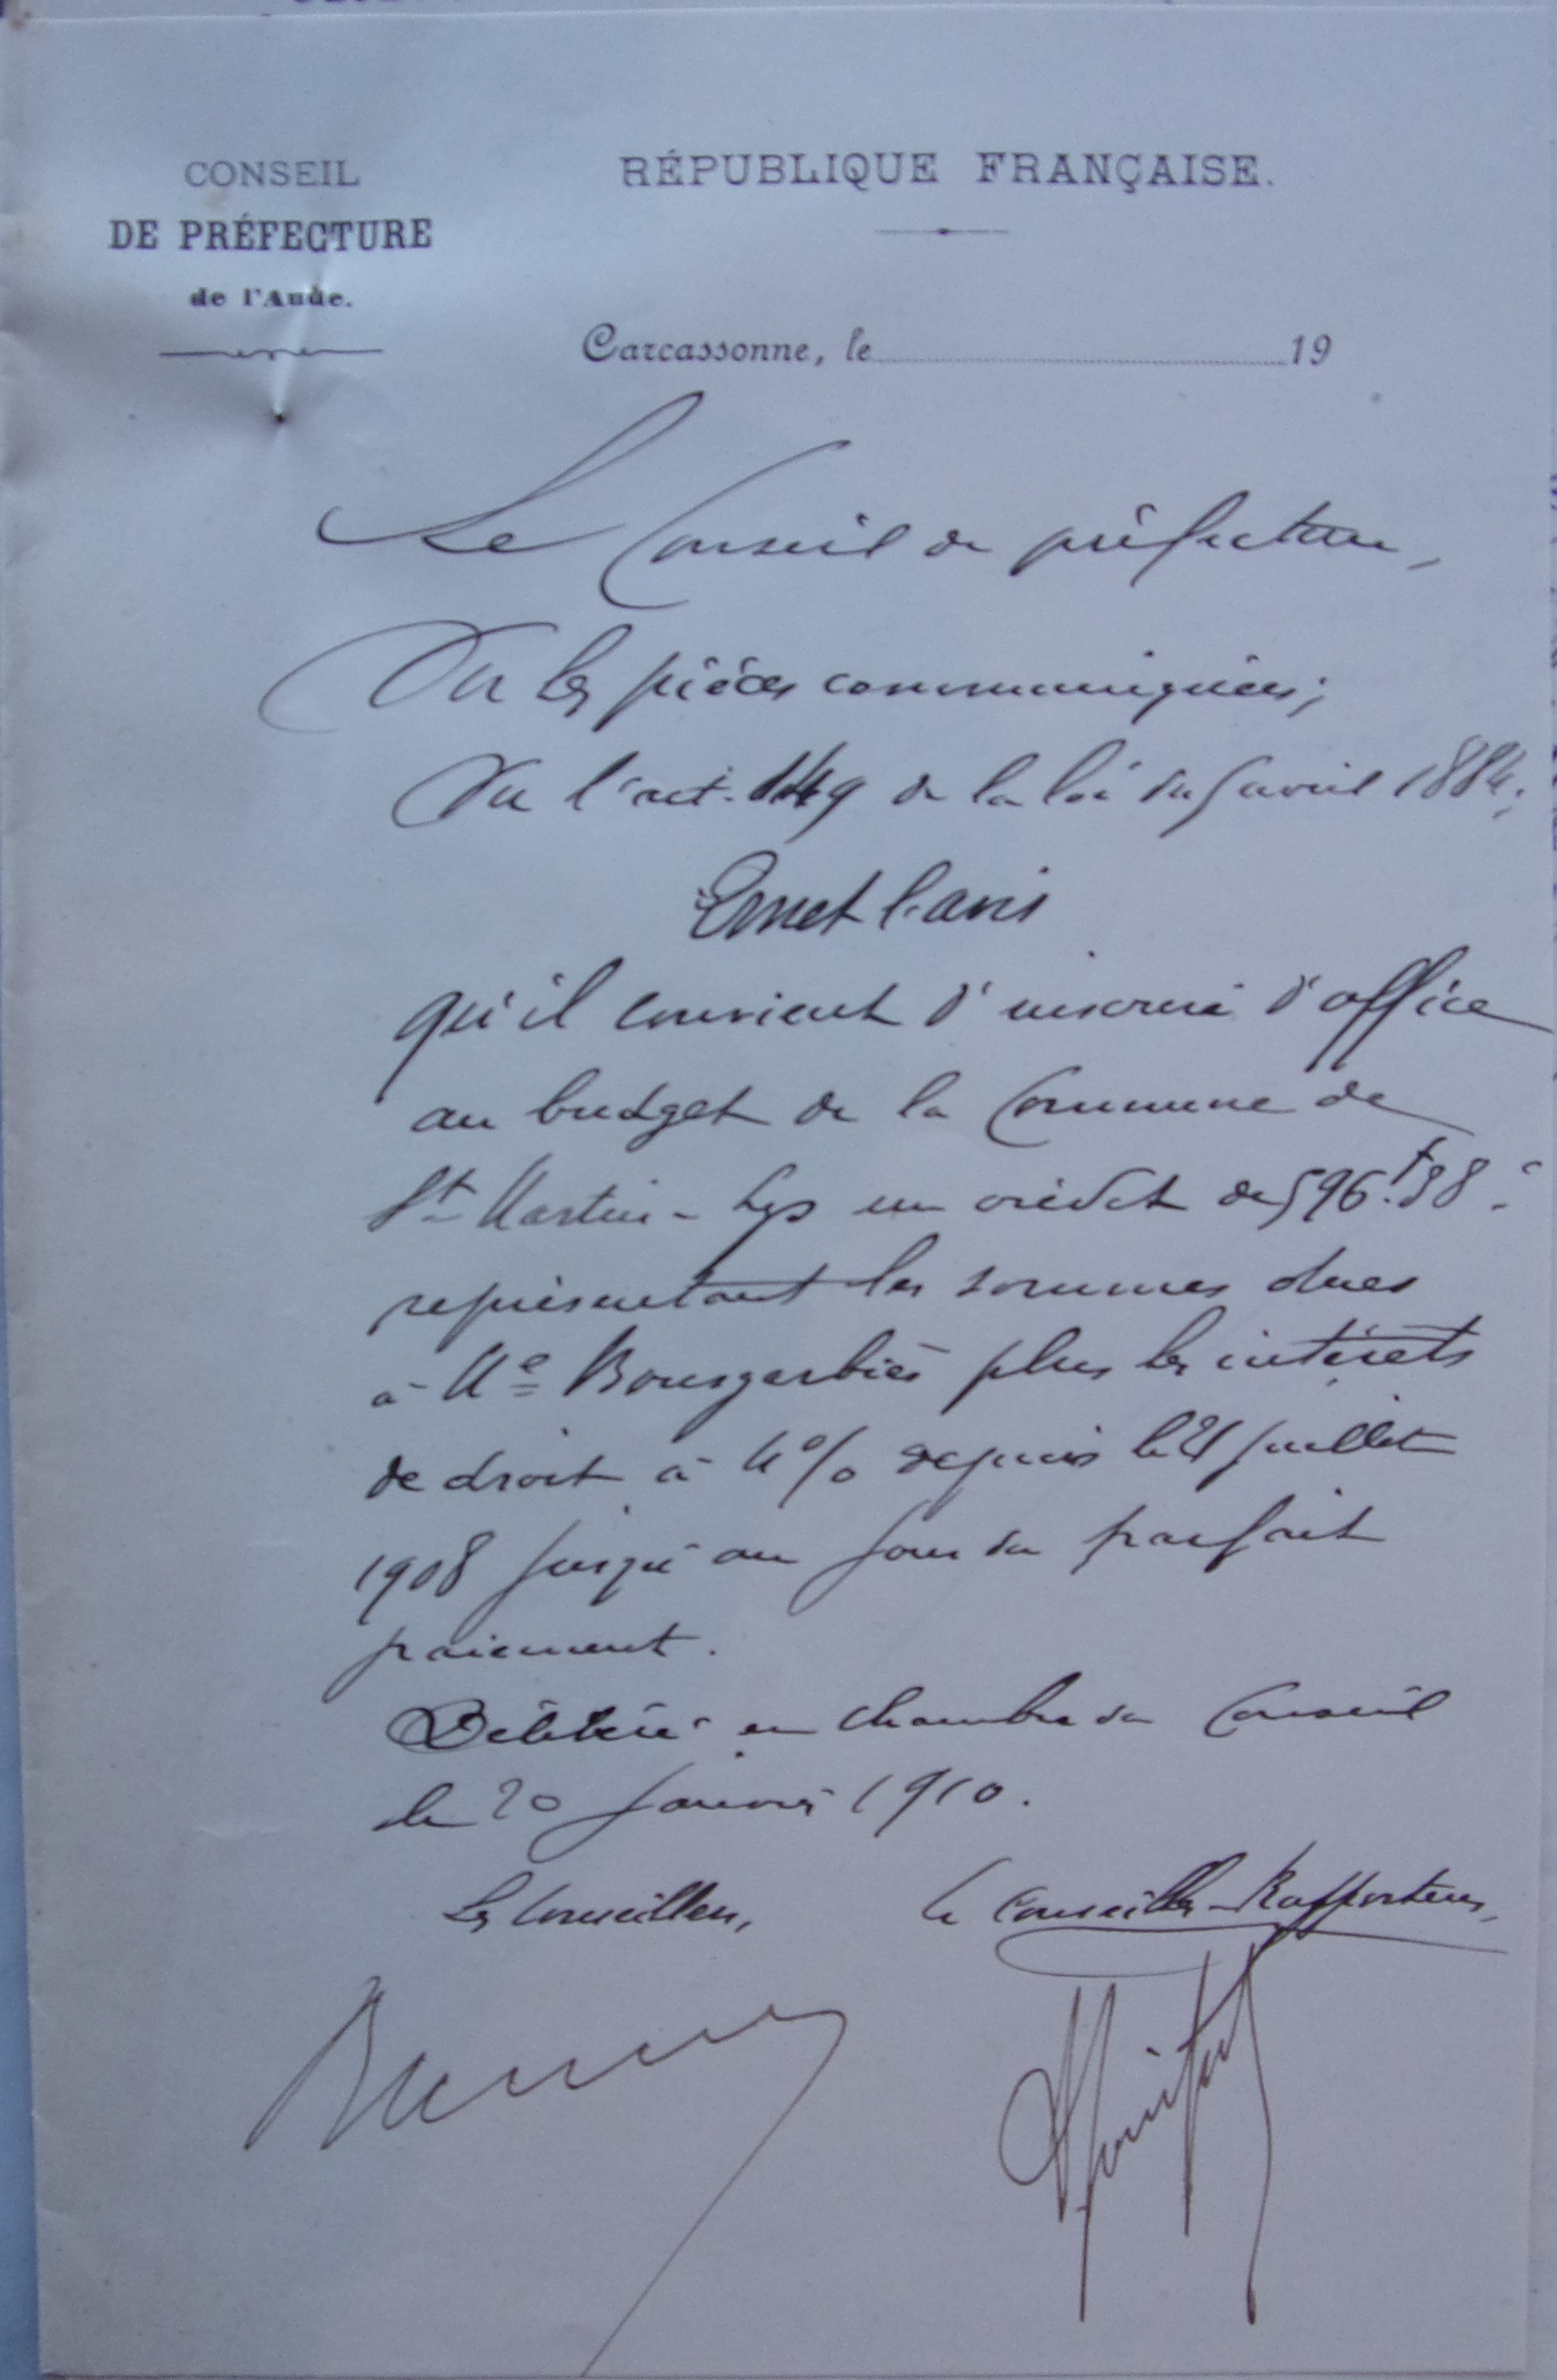 CONSEIL
DE PRÉFECTURE
de l'Aude.
RÉPUBLIQUE FRANÇAISE.
Carcassonne, le 19
Le Conseil de préfecture,
Vu les pièces communiquées;
Vu l'art. 149 de la loi du 5 avril 1884;
Emet l'avis
qu'il convient d'inscrire d'office
au budget de la Commune de
St Martin-Lys un crédit de 596.f 38
représentant les sommes dues
à Me Bousgarbiès plus les intérêts
de droit à 4% depuis le 21 juillet
1908 jusqu'au jour du parfait
paiement.
Délibéré en chambre du Conseil
le 20 janvier 1910.
Les Conseillers,
Le Conseiller-Rapporteur,